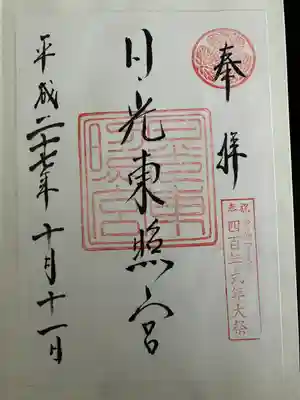 奉拝
奉祝
四百年式年大祭
日光東照宮
平成二十七年十月十一日